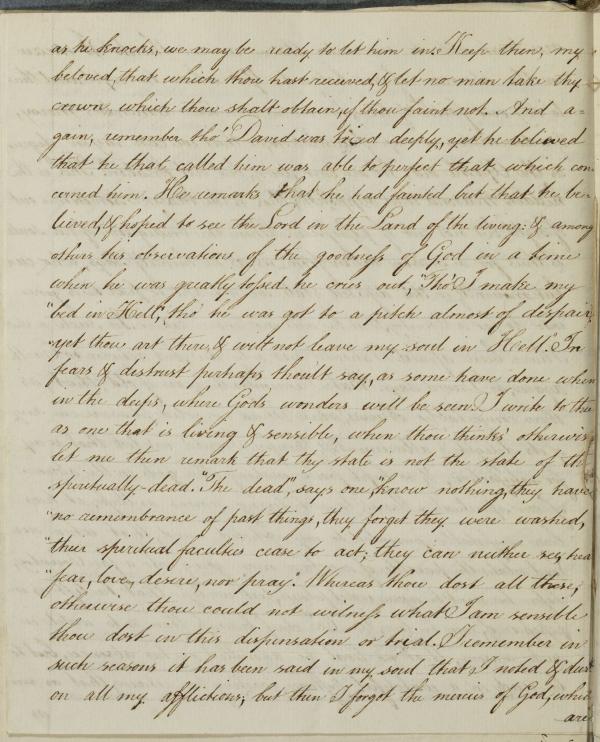 as he knocks, we may be ready to let him in. Keep then, my
beloved, that which thou hast received, & let no man take thy
crown which thou shalt obtain, if thou faint not. And a=
gain, remember tho' David was tried deeply, yet he believed
that he that called him was able to perfect that which con
cerned him. He remarks that he had fainted but that he be=
lieved, & hoped to see the Lord in the Land of the living: & among
others his observations of the goodness of God in a time
when he was greatly tossed he cries out, "Tho' I make my
"bed in Hell", tho' he was got to a pitch almost of despair,
"yet thou art there, & wilt not leave my soul in Hell". In
fears & distrust perhaps thoult say, as some have done when
in the deeps, where Gods wonders will be seen. I write to thee
as one that is living & sensible, when thou thinks' otherwise
let me then remark that thy state is not the state of the
spiritually-dead. "The dead", says one, "know nothing, they have
"no remembrance of past things, they forget they were washed,
"their spiritual faculties cease to act; they can neither see, hea
"fear, love, desire, nor pray". Whereas thou dost all these,
otherwise thou could not witness what I am sensible
thou dost in this dispensation or trial. I remember in
such seasons it has been said in my soul that I noted &
on all my afflictions, but then I forgot the mercies of God, which
are